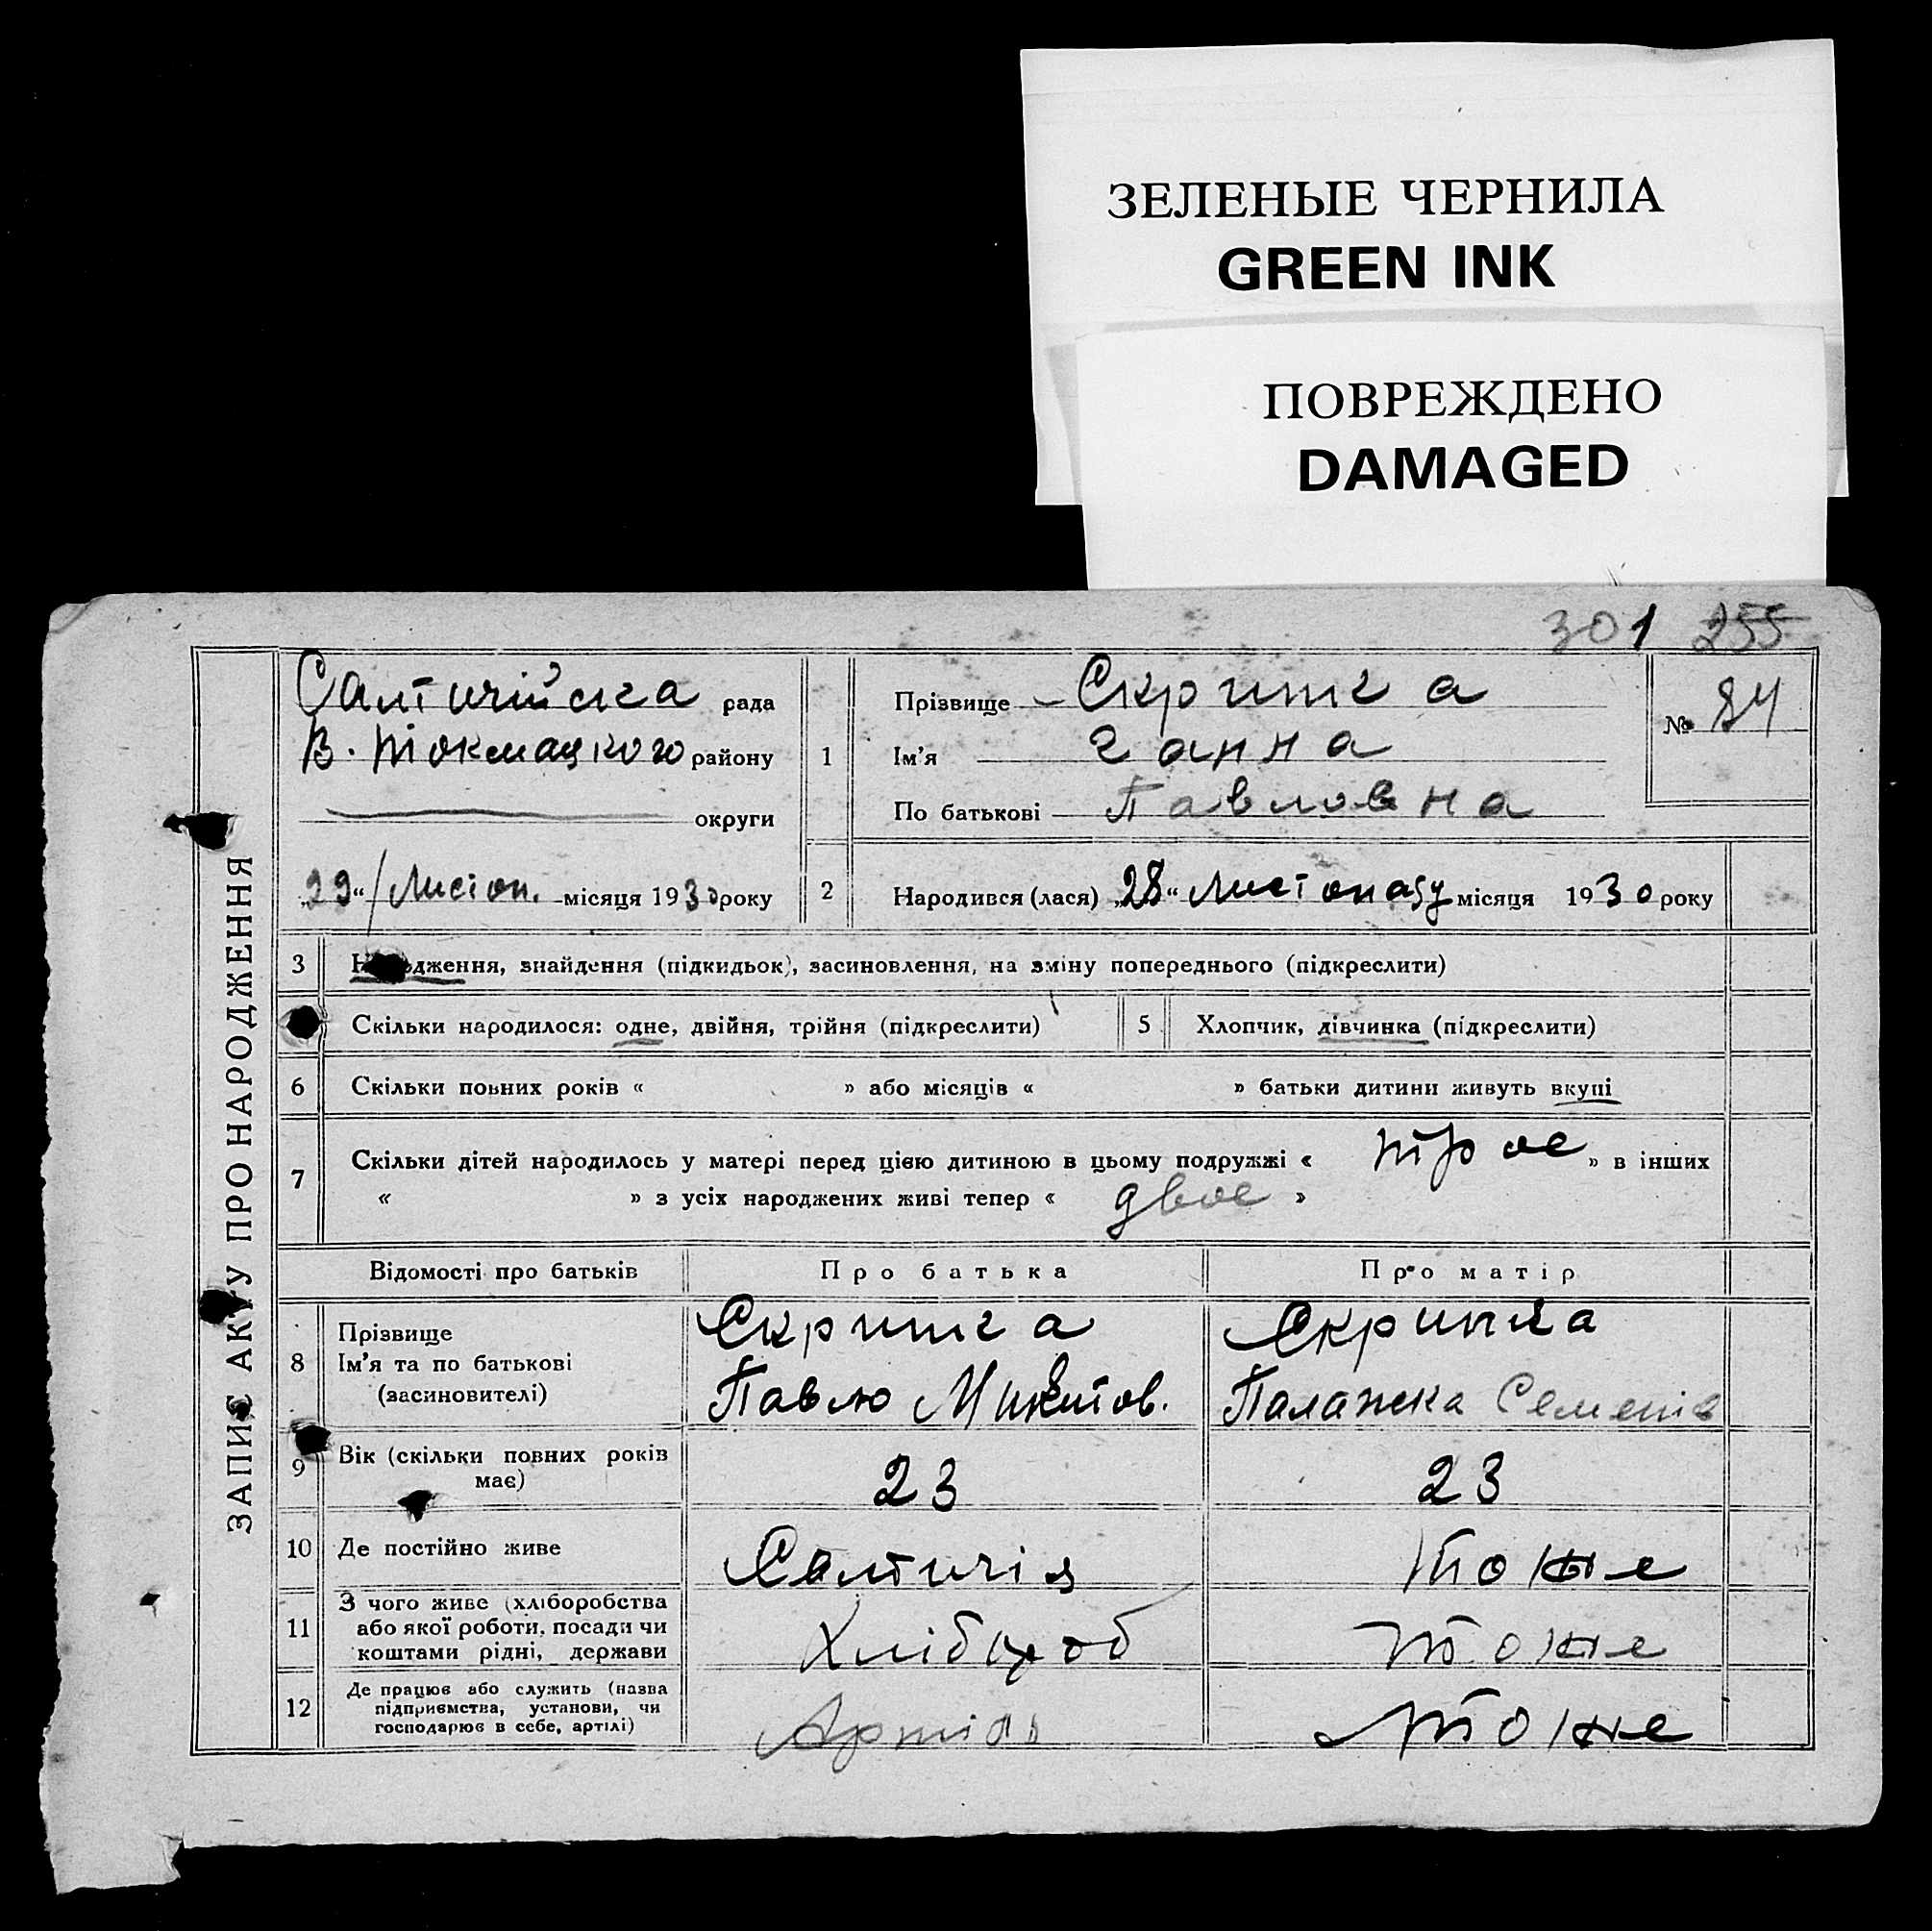 ЗЕЛЕНЫЕ ЧЕРНИЛА
GREEN INK
ПОВРЕЖДЕНО
DAMAGED
301 255
ЗАПИС АКТУ ПРО НАРОДЖЕННЯ
Салтичійська рада
В. Токмацкого району
округи
„29“ Листоп. місяця 1930 року
1
Прізвище Скрипка
Ім'я Ганна
По батькові Павловна
№ 84
2 Народився (лася) „28“ Листопаду місяця 1930 року
3 Народження, знайдення (підкидьок), засиновлення, на зміну попереднього (підкреслити)
Скільки народилося: одне, двійня, трійня (підкреслити) 5 Хлопчик, дівчинка (підкреслити)
6 Скільки повних років « » або місяців « » батьки дитини живуть вкупі
7 Скільки дітей народилось у матері перед цією дитиною в цьому подружжі « троє » в інших
« » з усіх народжених живі тепер « двоє »
Відомості про батьків Про батька Про матір
8 Прізвище Скрипка Скрипка
Ім'я та по батькові Павло Микитов. Палажка Семенів
(засиновителі)
9 Вік (скільки повних років 23 23
має)
10 Де постійно живе Салтичія тоже
11 З чого живе (хліборобства Хлібороб тоже
або якої роботи, посади чи
коштами рідні, держави
12 Де працює або служить (назва Артіль тоже
підприємства, установи, чи
господарює в себе, артілі)